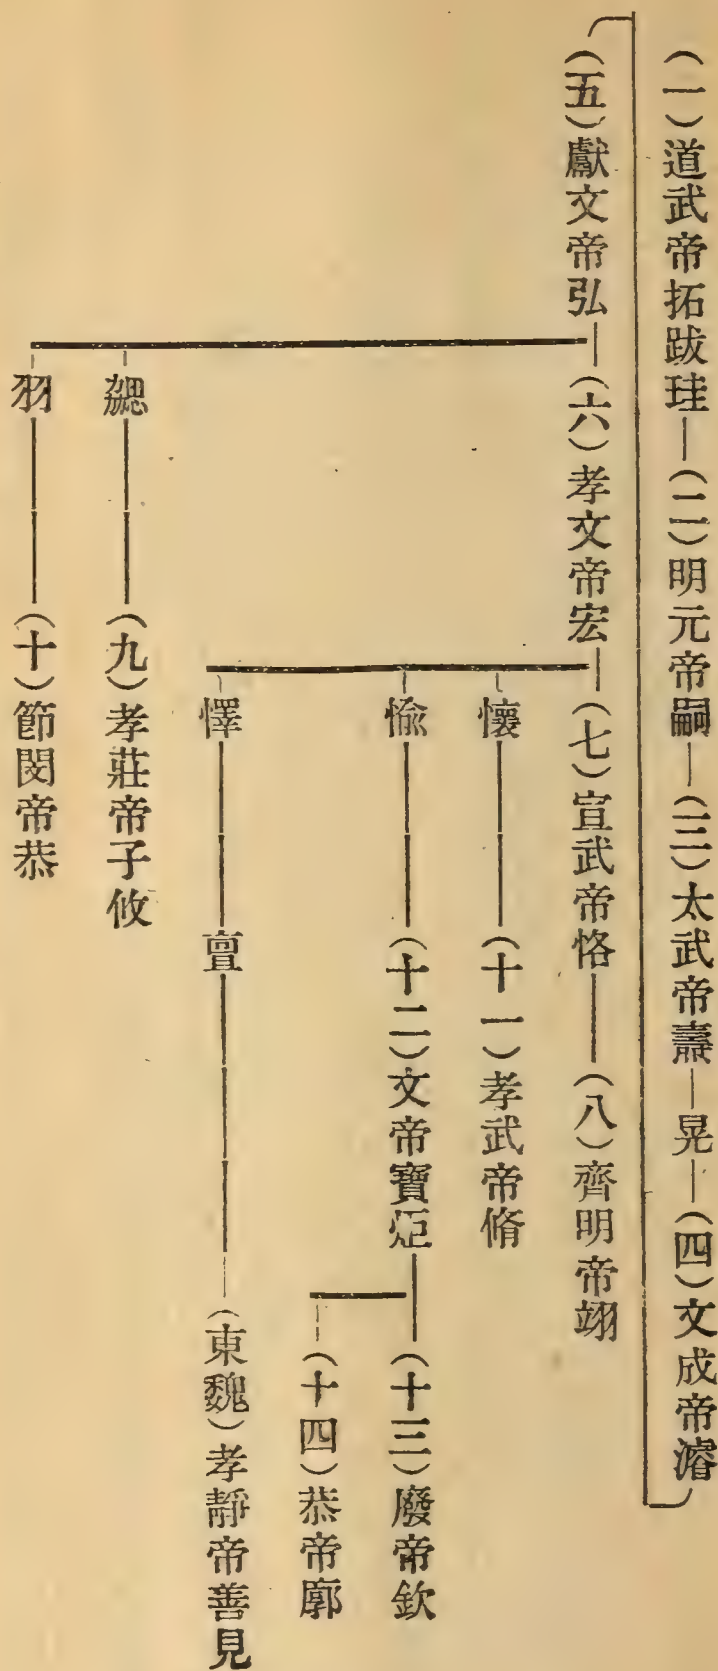 (一)道武帝拓跋珪—(二)明元帝嗣—(三)太武帝燾—晃—(四)文成帝濬
(五)獻文帝弘—(六)孝文帝宏—(七)宣武帝恪—(八)齊明帝翊
懷—(十一)孝武帝脩
愉—(十二)文帝寶炬—(十三)廢帝欽
(十四)恭帝廓
懌—亶—(東魏)孝靜帝善見
勰—(九)孝莊帝子攸
羽—(十)節閔帝恭